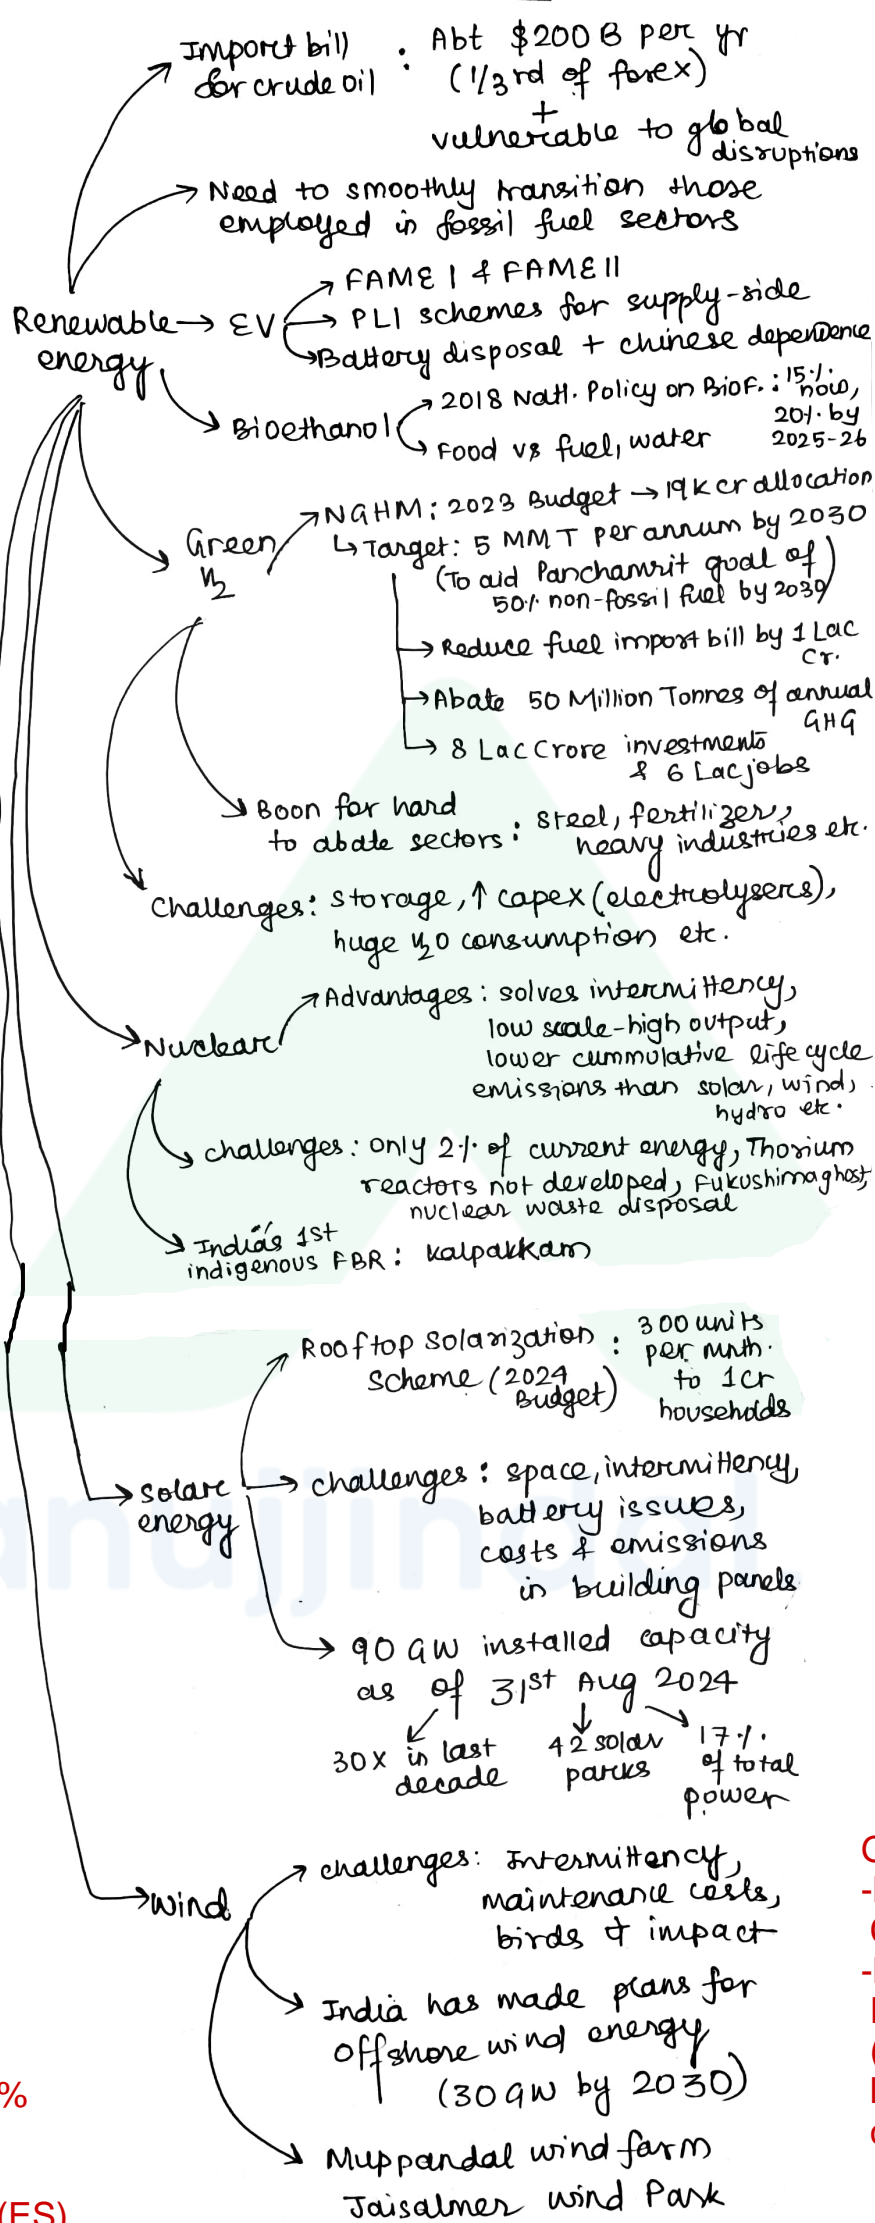 Import bill : Abt $200 B per yr
for crude oil (1/3rd of forex)
+
vulnerable to global
disruptions
Need to smoothly transition those
employed in fossil fuel sectors
Renewable energy
EV
FAME I & FAME II
PLI schemes for supply-side
Battery disposal + chinese dependence
Bioethanol
2018 Natl. Policy on BioF. : 15% now,
20% by
2025-26
Food vs fuel, water
Green H2
NGHM : 2023 Budget → 19k cr allocation
Target : 5 MMT per annum by 2030
(To aid Panchamrit goal of
50% non-fossil fuel by 2030)
Reduce fuel import bill by 1 Lac
Cr.
Abate 50 Million Tonnes of annual
GHG
8 Lac Crore investments
& 6 Lac jobs
Boon for hard
to abate sectors : Steel, fertilizer,
heavy industries etc.
Challenges : storage, ↑ capex (electrolysers),
huge H2O consumption etc.
Nuclear
Advantages : solves intermittency,
low scale-high output,
lower cummulative life cycle
emissions than solar, wind,
hydro etc.
challenges : only 2% of current energy, Thorium
reactors not developed, Fukushima ghost,
nuclear waste disposal
India's 1st
indigenous FBR : Kalpakkam
Solar
energy
Rooftop Solarization : 300 units
Scheme (2024 Budget) per mnth.
to 1 cr
households
challenges : space, intermittency,
battery issues,
costs & emissions
in building panels
90 GW installed capacity
as of 31st Aug 2024
30x in last
decade
42 solar
parks
17%
of total
power
anujjindal
wind
challenges: Intermittency,
maintenance costs,
birds & impact
India has made plans for
offshore wind energy
(30 GW by 2030)
Muppandal wind farm
Jaisalmer wind Park
%
(ES)